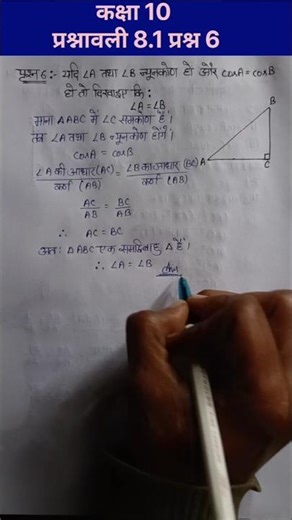 कक्षा 10
प्रश्नावली 8.1 प्रश्न 6
प्रश्न 6:- यदि ∠A तथा ∠B न्यूनकोण हो और cosA = cosB
हो तो दिखाइए कि:
∠A = ∠B
माना △ABC में ∠C समकोण है।
तब ∠A तथा ∠B न्यूनकोण होंगे।
cosA = cosB
∠A की आधार(AC) / कर्ण (AB) = ∠B का आधार (BC) / कर्ण (AB)
AC / AB = BC / AB
∴ AC = BC
अतः △ABC एक समद्विबाहु △ है।
∴ ∠A = ∠B Ans
B
A
C